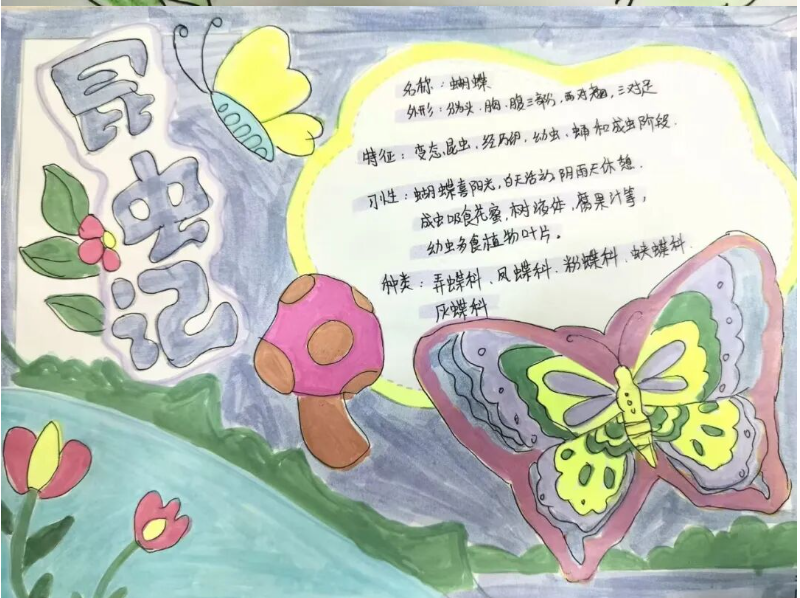 昆虫记
名称：蝴蝶
外形：分为头、胸、腹三部分，两对翅，三对足
特征：变态昆虫，经历卵、幼虫、蛹和成虫阶段．
习性：蝴蝶喜阳光，白天活动，阴雨天休憩．
成虫吸食花蜜，树液体，腐果汁等，
幼虫多食植物叶片。
种类：弄蝶科、凤蝶科、粉蝶科、蛱蝶科．
灰蝶科